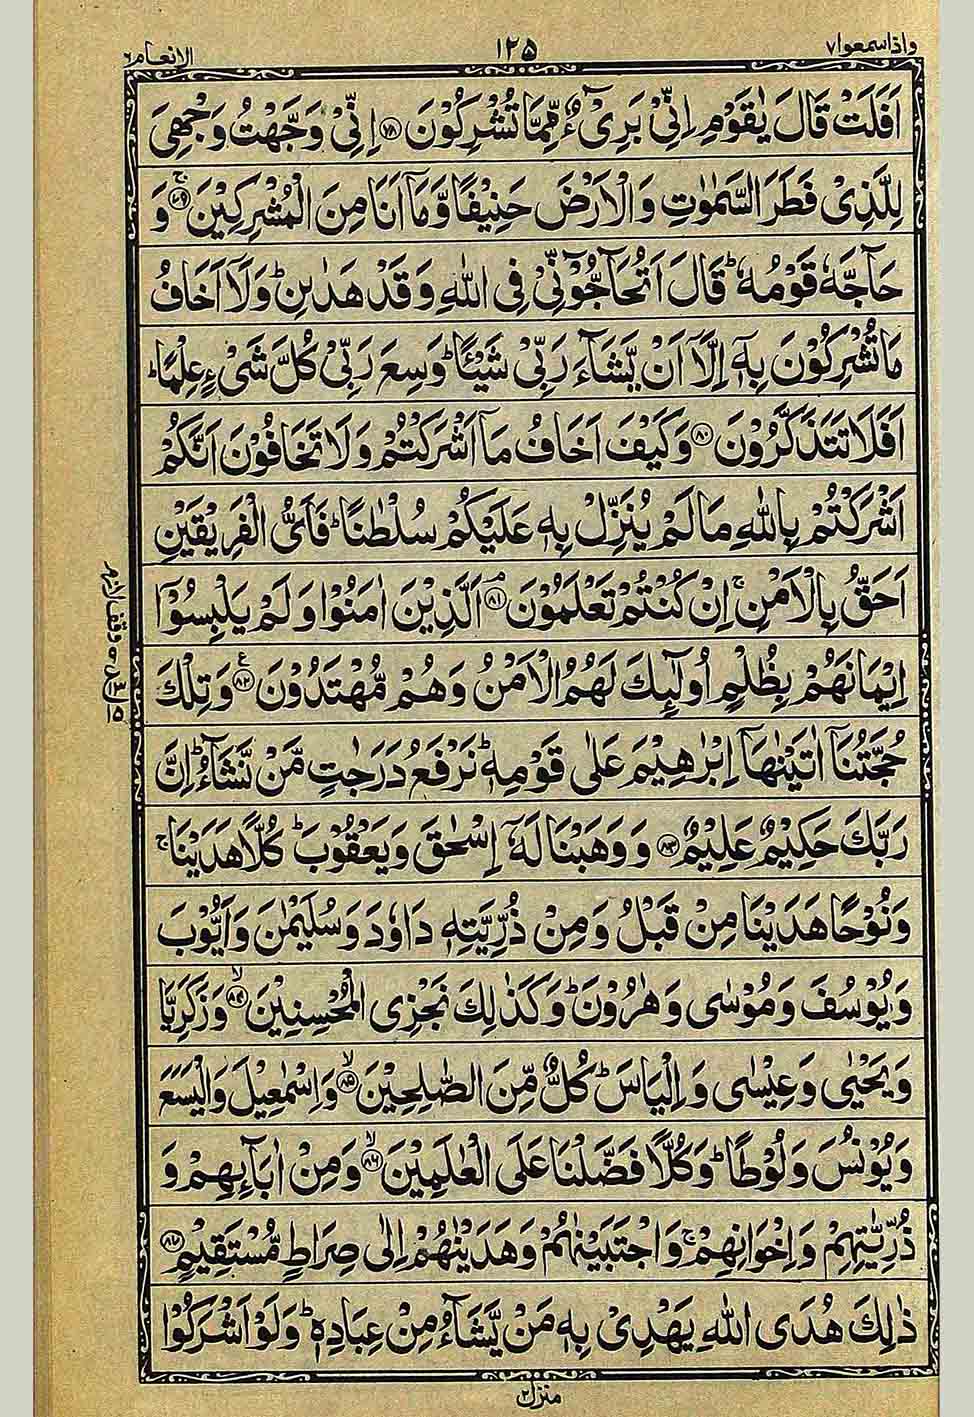 واذاسمعوا٧ ١٢٥ الانعام٦
اَفَلَتْ قَالَ يٰقَوْمِ اِنِّىْ بَرِىْٓءٌ مِّمَّا تُشْرِكُوْنَ ﴿٧٨﴾ اِنِّىْ وَجَّهْتُ وَجْهِىَ
لِلَّذِىْ فَطَرَ السَّمٰوٰتِ وَالْاَرْضَ حَنِيْفًا وَّمَاۤ اَنَا مِنَ الْمُشْرِكِيْنَ ﴿٧٩﴾ۚ وَ
حَآجَّهٗ قَوْمُهٗ ؕ قَالَ اَتُحَآجُّوْٓنِّىْ فِى اللّٰهِ وَقَدْ هَدٰىنِ ؕ وَلَاۤ اَخَافُ
مَا تُشْرِكُوْنَ بِهٖۤ اِلَّاۤ اَنْ يَّشَآءَ رَبِّىْ شَيْـًٔا ؕ وَسِعَ رَبِّىْ كُلَّ شَىْءٍ عِلْمًا ؕ
اَفَلَا تَتَذَكَّرُوْنَ ﴿٨٠﴾ وَكَيْفَ اَخَافُ مَاۤ اَشْرَكْتُمْ وَلَا تَخَافُوْنَ اَنَّكُمْ
اَشْرَكْتُمْ بِاللّٰهِ مَا لَمْ يُنَزِّلْ بِهٖ عَلَيْكُمْ سُلْطٰنًا ؕ فَاَىُّ الْفَرِيْقَيْنِ
اَحَقُّ بِالْاَمْنِ ۚ اِنْ كُنْتُمْ تَعْلَمُوْنَ ﴿٨١﴾ۘ اَلَّذِيْنَ اٰمَنُوْا وَلَمْ يَلْبِسُوْۤا
اِيْمَانَهُمْ بِظُلْمٍ اُولٰٓئِكَ لَهُمُ الْاَمْنُ وَهُمْ مُّهْتَدُوْنَ ﴿٨٢﴾ع وَتِلْكَ
حُجَّتُنَاۤ اٰتَيْنٰهَاۤ اِبْرٰهِيْمَ عَلٰى قَوْمِهٖ ؕ نَرْفَعُ دَرَجٰتٍ مَّنْ نَّشَآءُ ؕ اِنَّ
رَبَّكَ حَكِيْمٌ عَلِيْمٌ ﴿٨٣﴾ وَوَهَبْنَا لَهٗۤ اِسْحٰقَ وَيَعْقُوْبَ ؕ كُلًّا هَدَيْنَا ۚ
وَنُوْحًا هَدَيْنَا مِنْ قَبْلُ وَمِنْ ذُرِّيَّتِهٖ دَاوٗدَ وَسُلَيْمٰنَ وَاَيُّوْبَ
وَيُوْسُفَ وَمُوْسٰى وَهٰرُوْنَ ؕ وَكَذٰلِكَ نَجْزِى الْمُحْسِنِيْنَ ﴿٨٤﴾ۙ وَزَكَرِيَّا
وَيَحْيٰى وَعِيْسٰى وَاِلْيَاسَ ؕ كُلٌّ مِّنَ الصّٰلِحِيْنَ ﴿٨٥﴾ۙ وَاِسْمٰعِيْلَ وَالْيَسَعَ
وَيُوْنُسَ وَلُوْطًا ؕ وَكُلًّا فَضَّلْنَا عَلَى الْعٰلَمِيْنَ ﴿٨٦﴾ۙ وَمِنْ اٰبَآئِهِمْ وَ
ذُرِّيّٰتِهِمْ وَاِخْوَانِهِمْ ۚ وَاجْتَبَيْنٰهُمْ وَهَدَيْنٰهُمْ اِلٰى صِرَاطٍ مُّسْتَقِيْمٍ ﴿٨٧﴾
ذٰلِكَ هُدَى اللّٰهِ يَهْدِىْ بِهٖ مَنْ يَّشَآءُ مِنْ عِبَادِهٖ ؕ وَلَوْ اَشْرَكُوْا
منزل٢